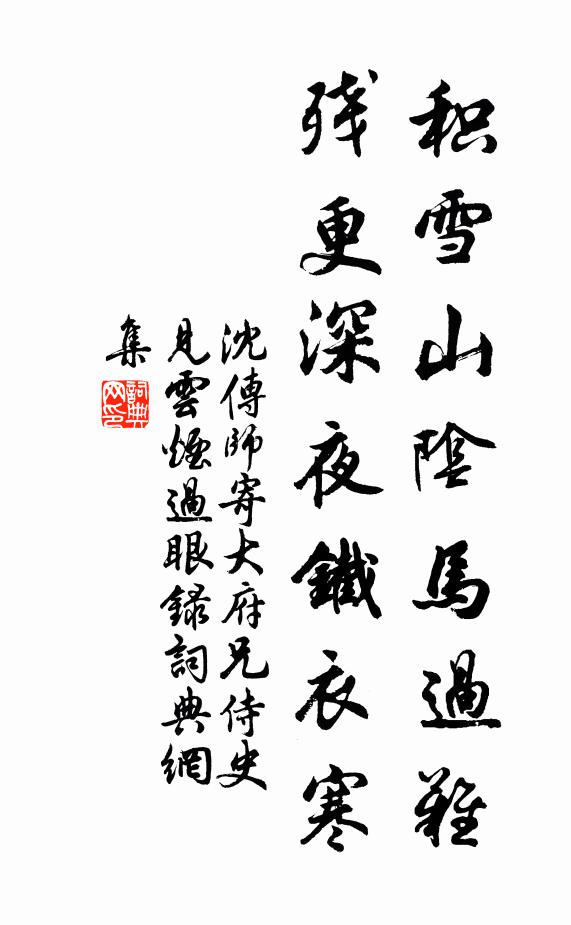 积雪山陰馬過難
残更深夜鐵衣寒
沈傳師寄大府兄侍史
見雲煙過眼錄詞典網
集
詞典
网印